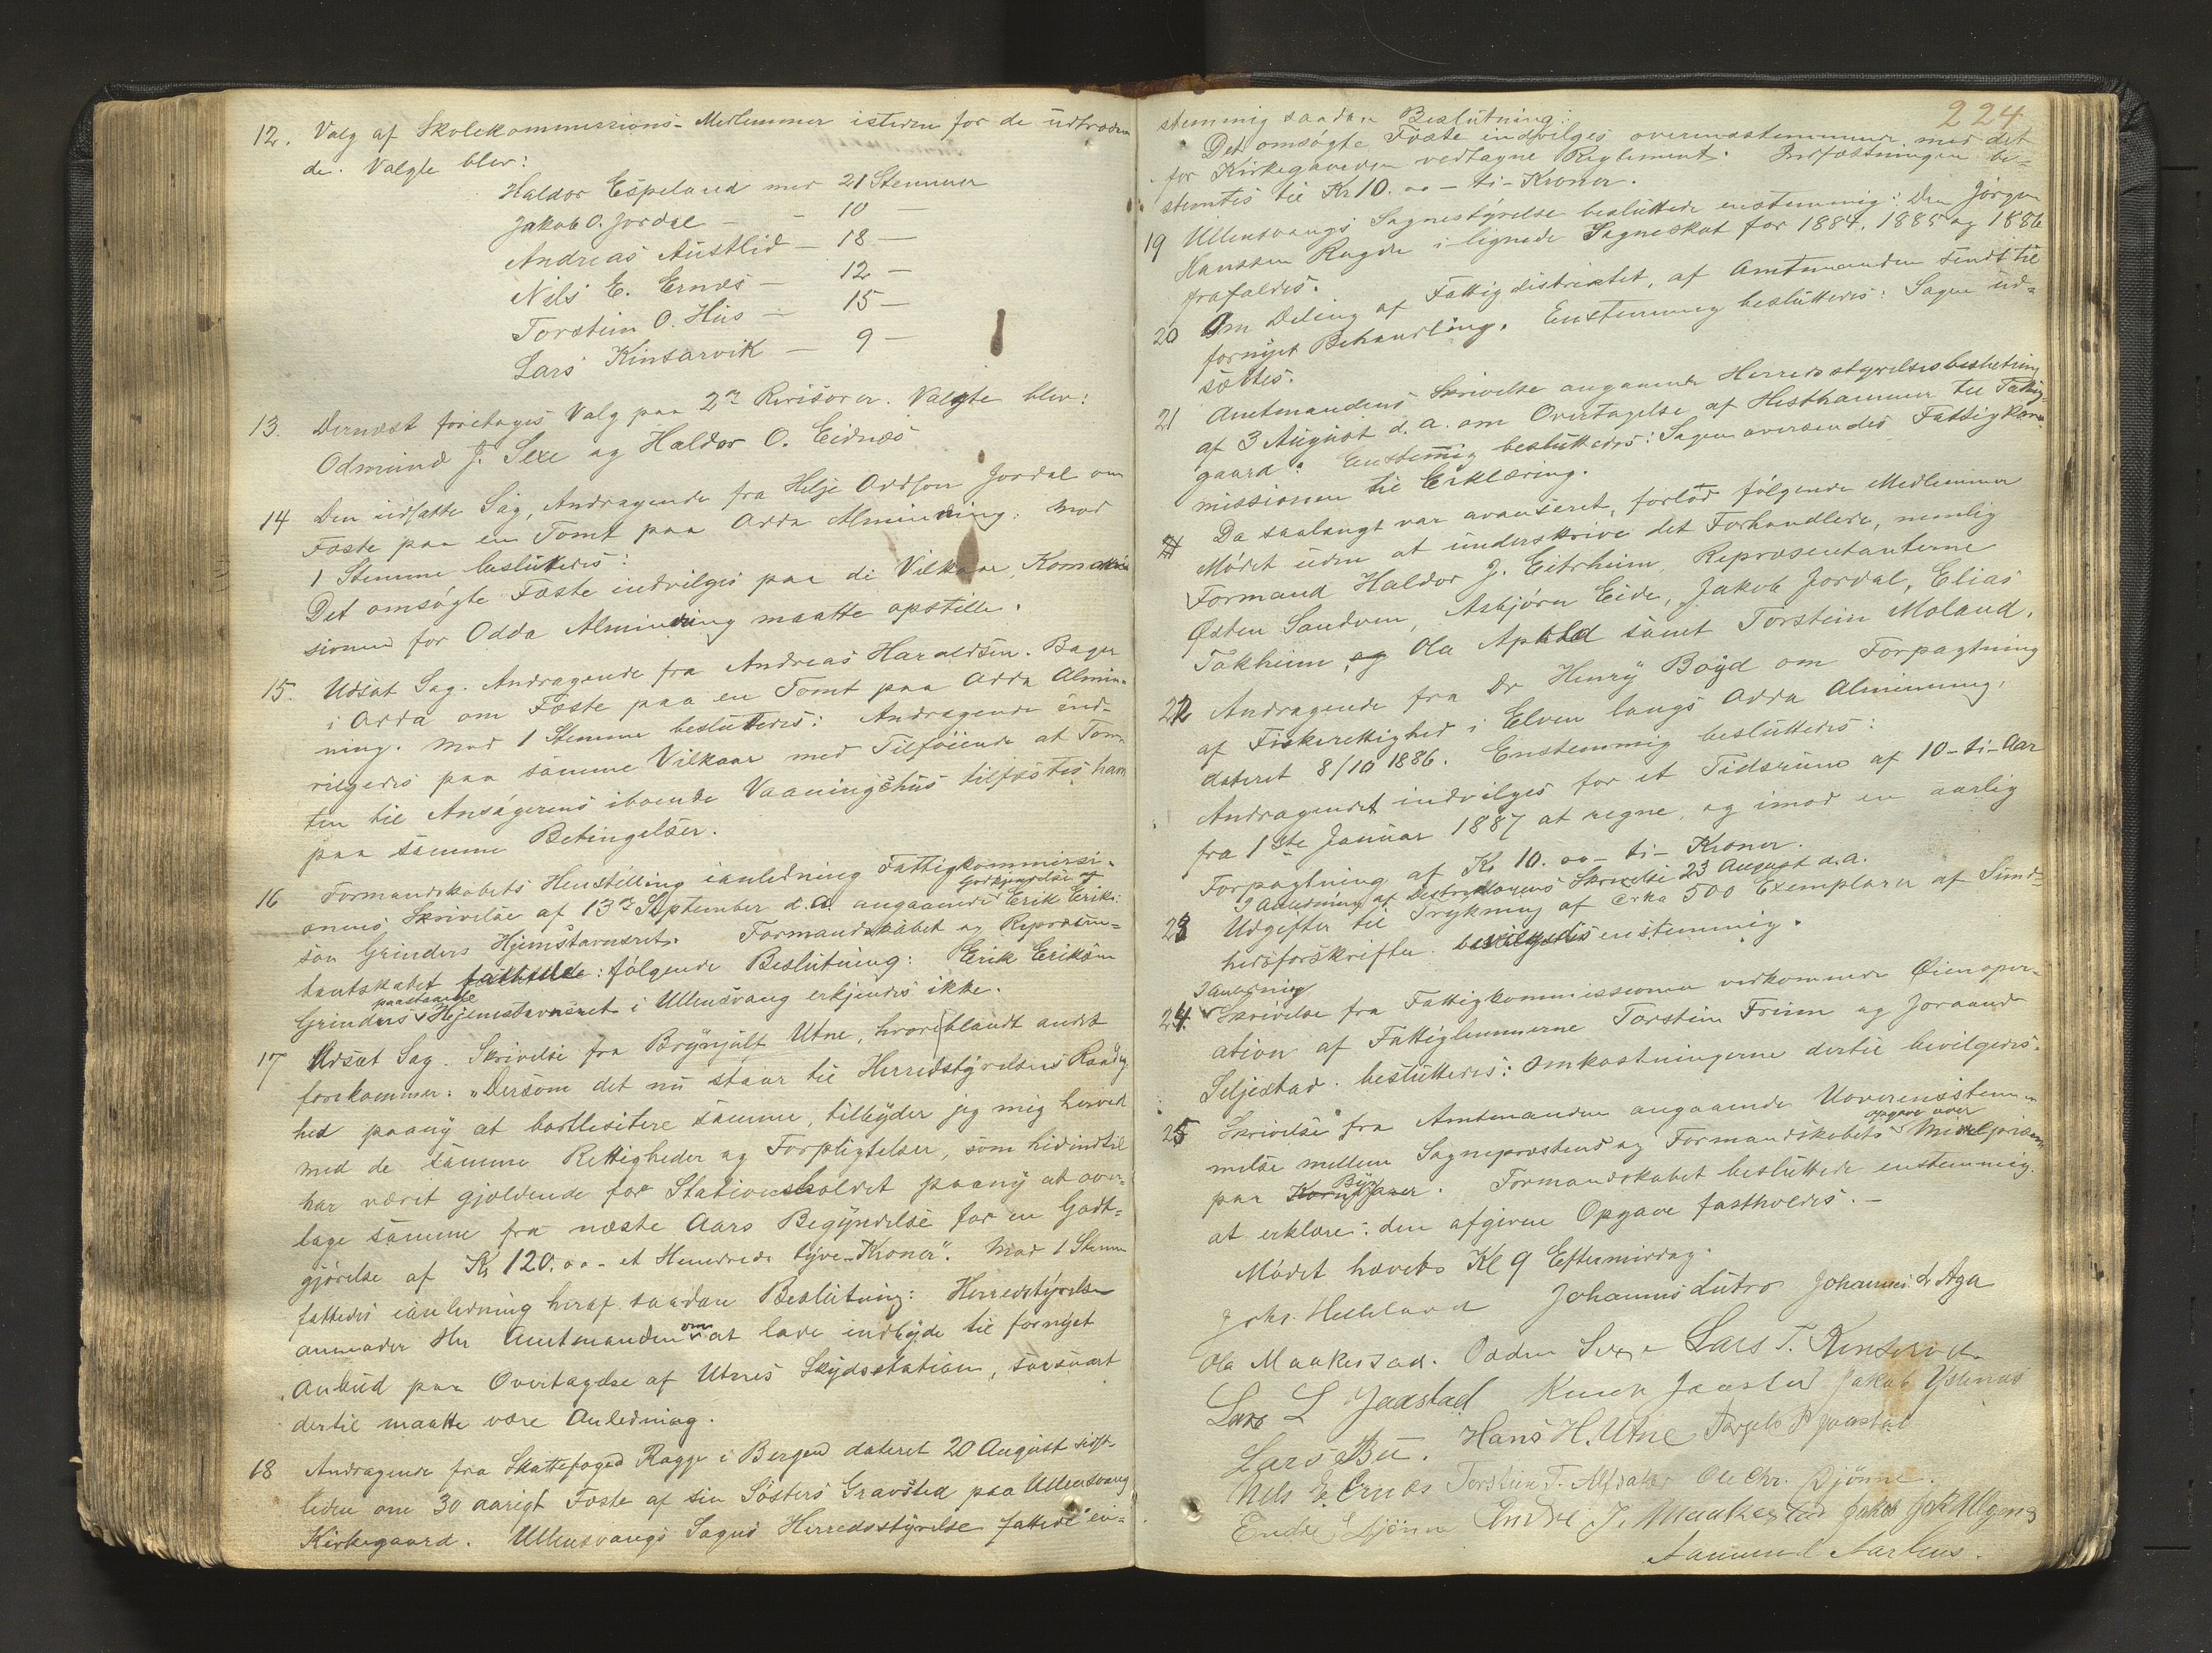 12. Valg af Skolekommissions-Medlemmer isteden for de udtræden
de. Valgte blev:
Haldor Espeland med 21 Stemmer
Jakob O. Jordal - - 10 -
Andreas Austlid - 18 -
Nils E. Ernes - 12 -
Torstein O. Hus - 15 -
Lars Kinsarvik - 9 -
13. Dernæst foretoges Valg paa 2de Revisorer. Valgte blev:
Odmund J. Sexe og Haldor O. Eidnæs
14 Den udsatte Sag, Andragende fra Helje Oddson Jordal om
Fæste paa en Tomt paa Odda Alminding: Mod
1 Stemme besluttedes:
Det omsøgte Fæste indvilges paa de Vilkaar, Kommis
sionen for Odda Alminding maatte opstille.
15. Udsat Sag. Andragende fra Andreas Haraldsen. Bager
i Odda om Fæste paa en Tomt paa Odda Almin-
ning. Mod 1 Stemme besluttedes: Andragende ind-
vilgedes paa samme Vilkaar med Tilføiende at Tom
ten til Ansøgerens iboende Vaaningshus tilfæstes ham
paa samme Betingelser.
16 Formandskabets Henstilling ianledning Fattigkommissi-
onens Skrivelse af 13de September d.A. angaaende Godkjendelse af Erik Eriks:
søn Grinders Hjemstavnsret. Formandskabet og Repræsen-
tantskabet fattede: følgende Beslutning: Erik Eriksøn
Grinders paastaaede Hjemstavnsret i Ullensvang erkjendes ikke.
17 Udsat Sag. Skrivelse fra Brynjulf Utne, hvori blandt andet
forekommer: "Dersom det nu staar til Herredstyrelsens Raadig
hed paany at bortlisitere samme, tilbyder jeg mig herved
med de samme Rettigheder og Forpligtelser, som hidindtil
har været gjældende for Stationsholdet paany at over-
tage samme fra næste Aars Begyndelse for en Godt-
gjørelse af Kr 120.00 - et Hundrede tyve - Kroner". Mod 1 Stemme
fattedes ianledning heraf saadan Beslutning: Herredstyrelsen
anmoder Hr Amtmanden om at lade indbyde til fornyet
Anbud paa Overtagelse af Utnes Skydsstation, saasnart
dertil maatte være Anledning.
18 Andragende fra Skattefoged Ragge i Bergen dateret 20 August sidst-
leden om 30 aarigt Fæste af sin Søsters Gravsted paa Ullensvang
Kirkegaard. Ullensvangs Sogns Herredsstyrelse fattede en-
224
stemmig saadan Beslutning:
Det omsøgte Fæste indvilges overensstemmende med det
for Kirkegaarden vedtagne Reglement. Indfæstningen be-
stemtes til Kr 10.00 - ti - Kroner.
19 Ullensvangs Sognestyrelse besluttede enstemmig: Den Jørgen
Hanssen Ragde i lignede Sogneskat for 1884, 1885 og 1886
frafaldes.
20 Om Deling af Fattigdistriktet, af Amtmanden sendt til
fornyet Behandling. Enstemmig besluttedes: Sagen ud-
sættes.
21 Amtmandens Skrivelse angaaende Herredsstyrelsesbeslutning
af 3 August d.a. om Overtagelse af Hesthammer til Fattig-
gaard: Enstemmig besluttedes: Sagen oversendes Fattigkom-
missionen til Erklæring.
Da saalangt var avanseret, forlod følgende Medlemmer
Mødet uden at underskrive det Forhandlede, nemlig
Formand Haldor J. Eitrheim, Repræsentanterne
Østen Sandven, Asbjørn Eide, Jakob Jordal, Elias
Tokheim, og Ola Apold samt Torstein Moland.
22 Andragende fra Dr Henry Boyd om Forpagtning
af Fiskerettighed i Elven langs Odda Alminning,
dateret 8/10 1886. Enstemmig besluttedes:
Andragendet indvilges for et Tidsrum af 10 - ti - Aar
fra 1ste Januar 1887 at regne, og imod en aarlig
Forpagtning af Kr 10.00 - ti - Kroner.
I Anledning af Distriktslægens Skrivelse 23 August d.a.
23 Udgifter til Trykning af cirka 500 Exemplarer af Sund-
hedsforskrifter. bevilgedes enstemmig.
I Anledning
24. Skrivelse fra Fattigkommissionen vedkommende Øienoper-
ation af Fattiglemmerne Torstein Freim og Joraand
Seljestad. besluttedes: Omkostningerne dertil bevilgedes.
25 Skrivelse fra Amtmanden angaaende Uoverensstem-
melse mellem Sognepræstens og Formandskabets opgave over Middelprisen
paa Korn Byg varer. Formandskabet besluttede enstemmig
at erklære: den afgivne Opgave fastholdes. -
Mødet hævets Kl 9 Eftermiddag.
Johs. Helleland Johannis Lutro Johannes L Aga
Ola Maakestad. Oddm Sexe Lars T. Kinservik
Lars L Jaastad Knud Jaastad Jakob Ystenæs
Lars Bu. Hans H. Utne Torgels Jaastad
Nils E. Ernes Torstein T. Ole Chr. Djønne.
Endre E Djønne Endre J. Maakestad Jakob
Aamund Aarhus.